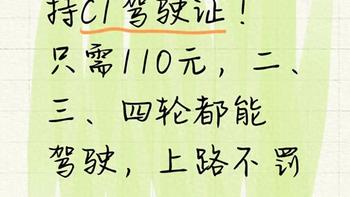 持C1驾驶证！
只需110元，二、
三、四轮都能
驾驶，上路不罚